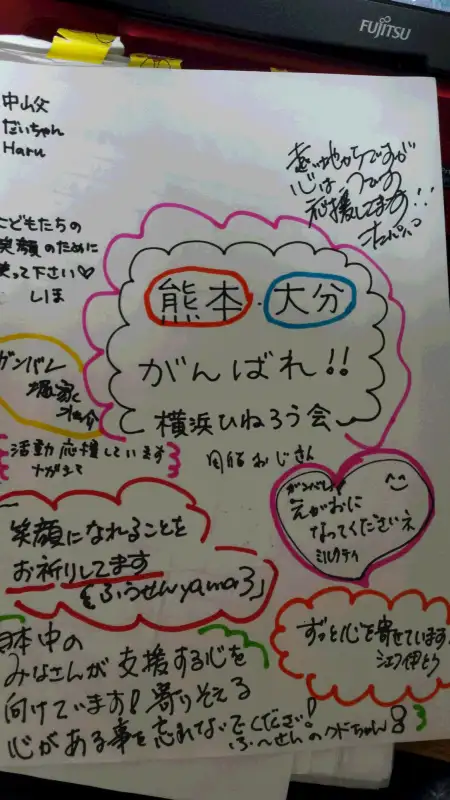 FUJITSU
中山父
だいちゃん
Haru
遠い地からですが
心は1つです
応援してます!!
こどもたちの
笑顔のために
笑って下さい♡
しほ
熊本・大分
がんばれ!!
横浜ひねろう会
ガンバレ
活動応援しています
ナガシマ
風船おじさん
ガンバレ!
えがおに
なってくださいネ
ミルクティ
笑顔になれることを
お祈りしてます
ふうせんyamaろ」
ずっと心を寄せています
シェフ伊とう
日本中の
みなさんが支援する心を
向けています!寄りそえる
心がある事を忘れないでください!
ふーせんのクドちゃん